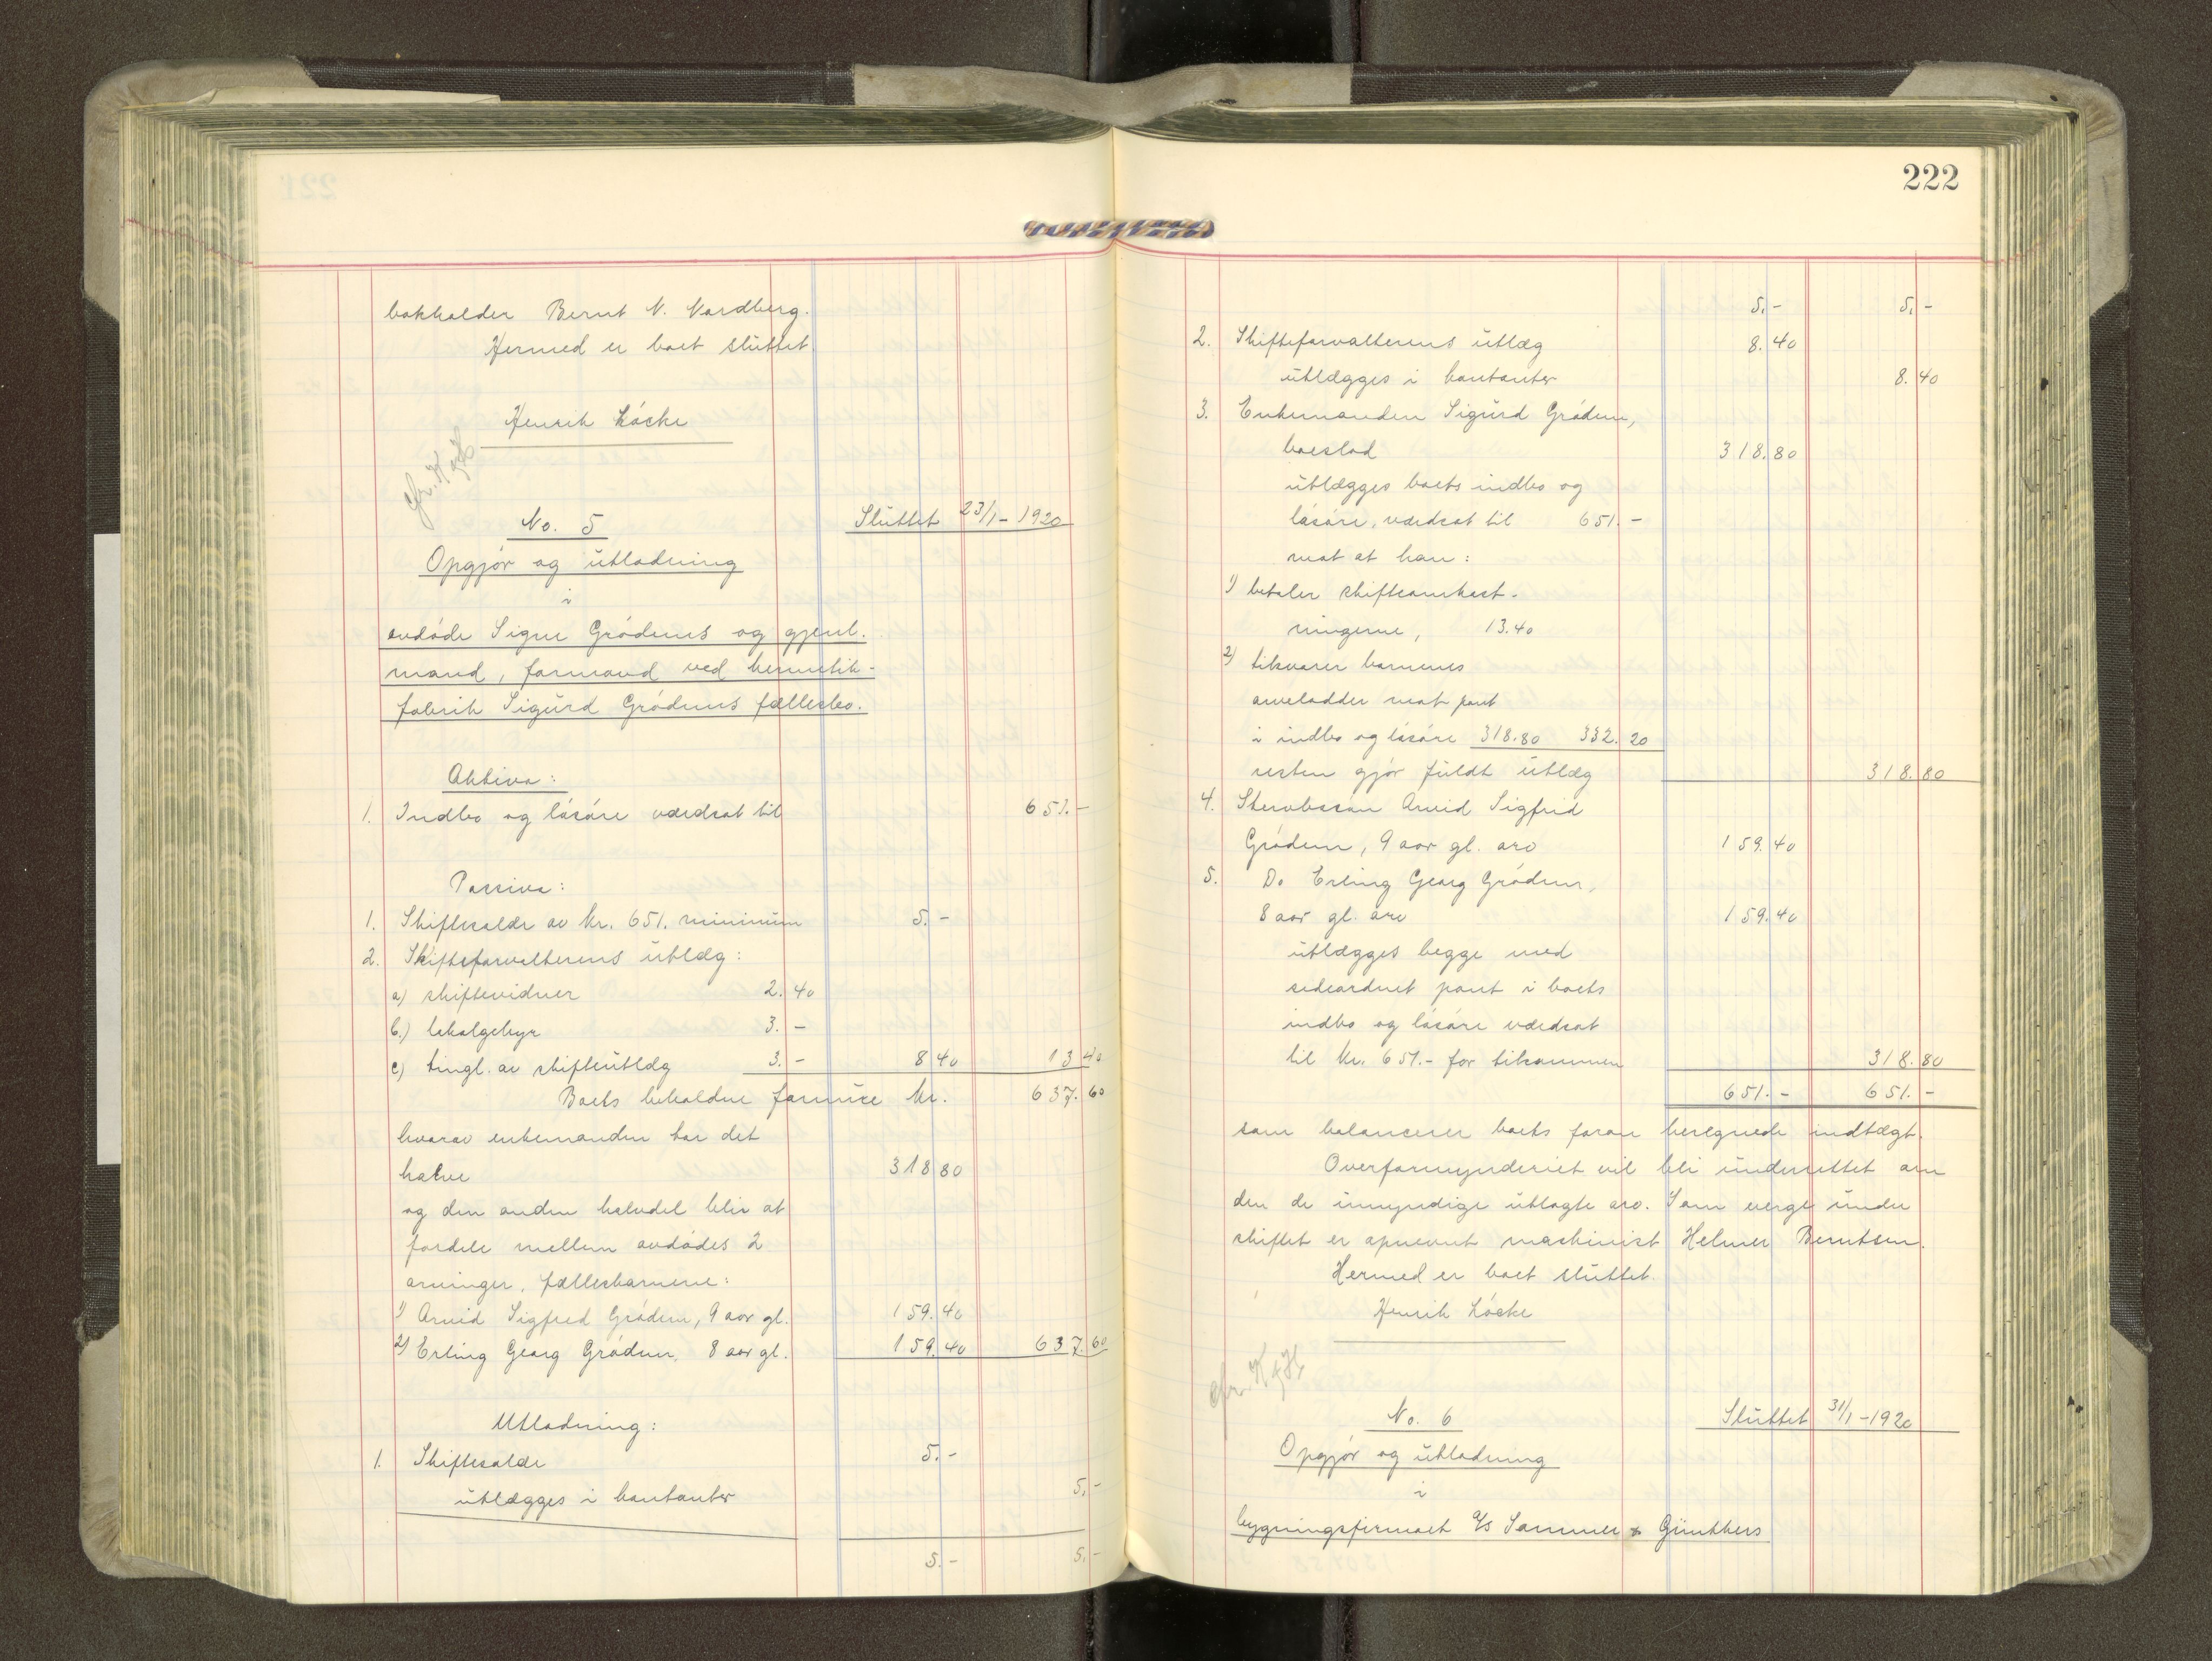 bokholder Bernt N. Nordberg.
Hermed er boet sluttet.
Henrik Löcke
No. 5 Sluttet 23/1 - 1920
Opgjör og utlodning
i
avdöde Signe Grödems og gjenl.
mand, formand ved hermetik-
fabrik Sigurd Grödems fællesbo.
Aktiva:
1. Indbo og lösöre værdsat til 651.-
Passiva:
1. Skiftesalær av kr. 651. minimum 5.-
2. Skifteforvalterens utlæg:
a) skiftevidner 2.40
b.) lokalgebyr 3.-
c) tingl. av skifteutlæg 3.- 8 40 13 40
Boets beholdne formue kr. 637.60
hvorav enkemanden har det
halve 318 80
og den anden halvdel blir at
fordele mellem avdödes 2
arvinger, fællesbarnene:
1) Arvid Sigfred Grödem, 9 aar gl. 159.40
2) Erling Georg Grödem, 8 aar gl. 159.40 637.60
Utlodning:
1. Skiftesalær 5.-
utlægges i kontanter 5.-
5.- 5.-
222
5.- 5.-
2. Skifteforvalterens utlæg 8.40
utlægges i kontanter 8.40
3. Enkemanden Sigurd Grödem,
boeslod 318.80
utlægges boets indbo og
lösöre, værdsat til 651.-
mot at han:
1) betaler skifteomkost-
ningerne, 13.40
2) tilsvarer barnenes
arvelodder mot pant
i indbo og lösöre 318.80 332.20
resten gjör fuldt utlæg 318.80
4. Stervbssön Arvid Sigfrid
Grödem, 9 aar gl. arv 159.40
5. Do Erling Georg Grödem,
8 aar gl. arv 159.40
utlægges begge med
sideordnet pant i boets
indbo og lösöre værdsat
til kr. 651.- for tilsammen 318.80
651.- 651.-
som balancerer boets foran beregnede indtægt.
Overformynderiet vil bli underrettet om
den de umyndige utlagte arv. Som verge under
skiftet er opnevnt maskinist Helmer Berntsen.
Hermed er boet sluttet.
Henrik Löcke
No. 6 Sluttet 31/1 - 1920
Opgjör og utlodning
i
bygningsfirmaet A/S Sommer & Günthers